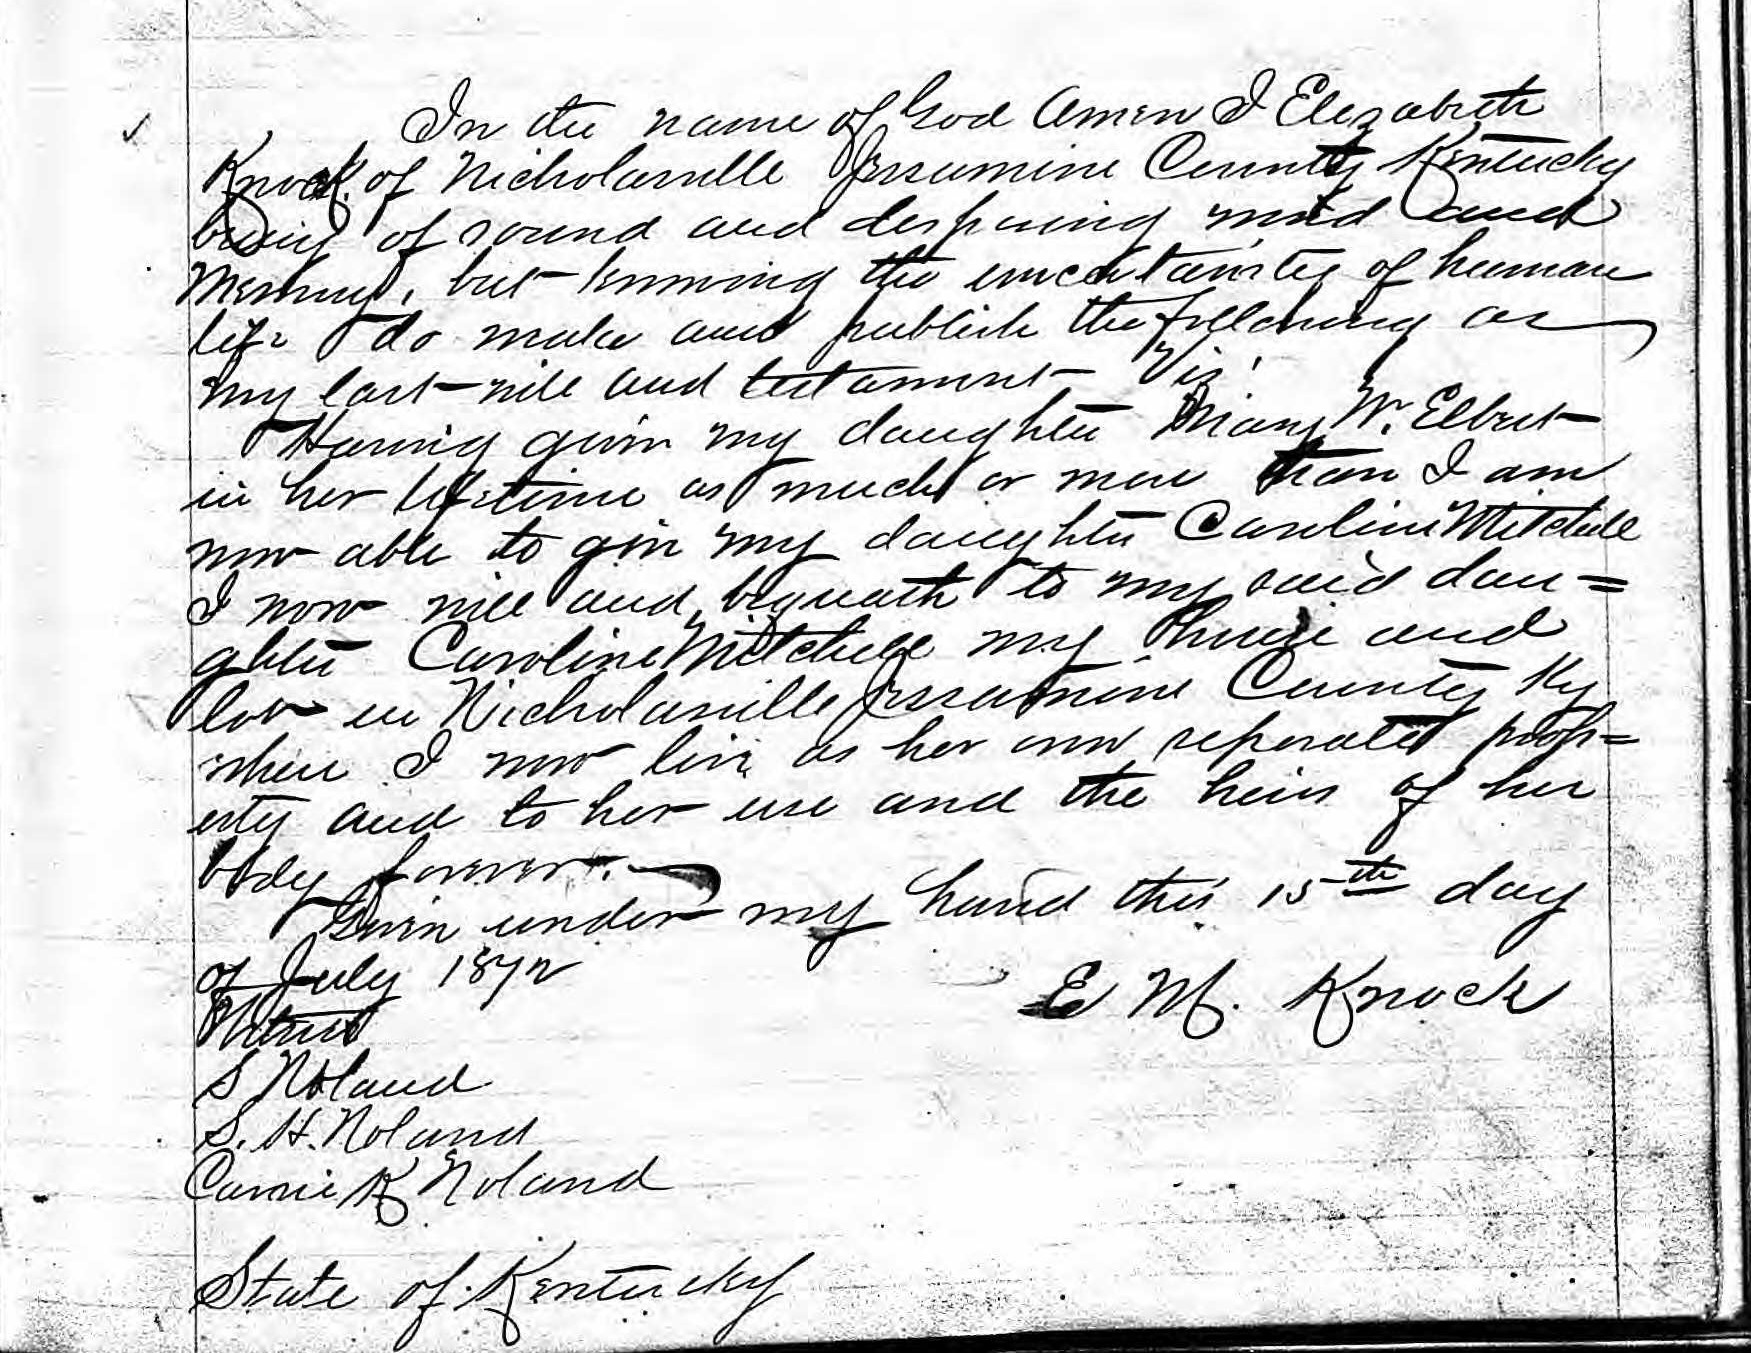 In the name of God Amen I Elizabeth
Knock of Nicholasville Jessamine County Kentucky
being of sound and desposing mind and
Memory, but knowing the uncertainty of human
life I do make and publish the following as
my last will and testament Viz!
Having given my daughter Mary W. Elbert
in her lifetime as much or more than I am
now able to give my daughter Caroline Mitchell
I now will and bequeath to my said dau=
ghter Caroline Mitchell my house and
lot in Nicholasville Jessamine County Ky
where I now live as her own seperate prop=
erty and to her use and the heirs of her
body forever.
Given under my hand this 15th day
of July 1872
E M. Knock
Witness
S Noland
S. H. Noland
Carrie K Noland
State of Kentucky